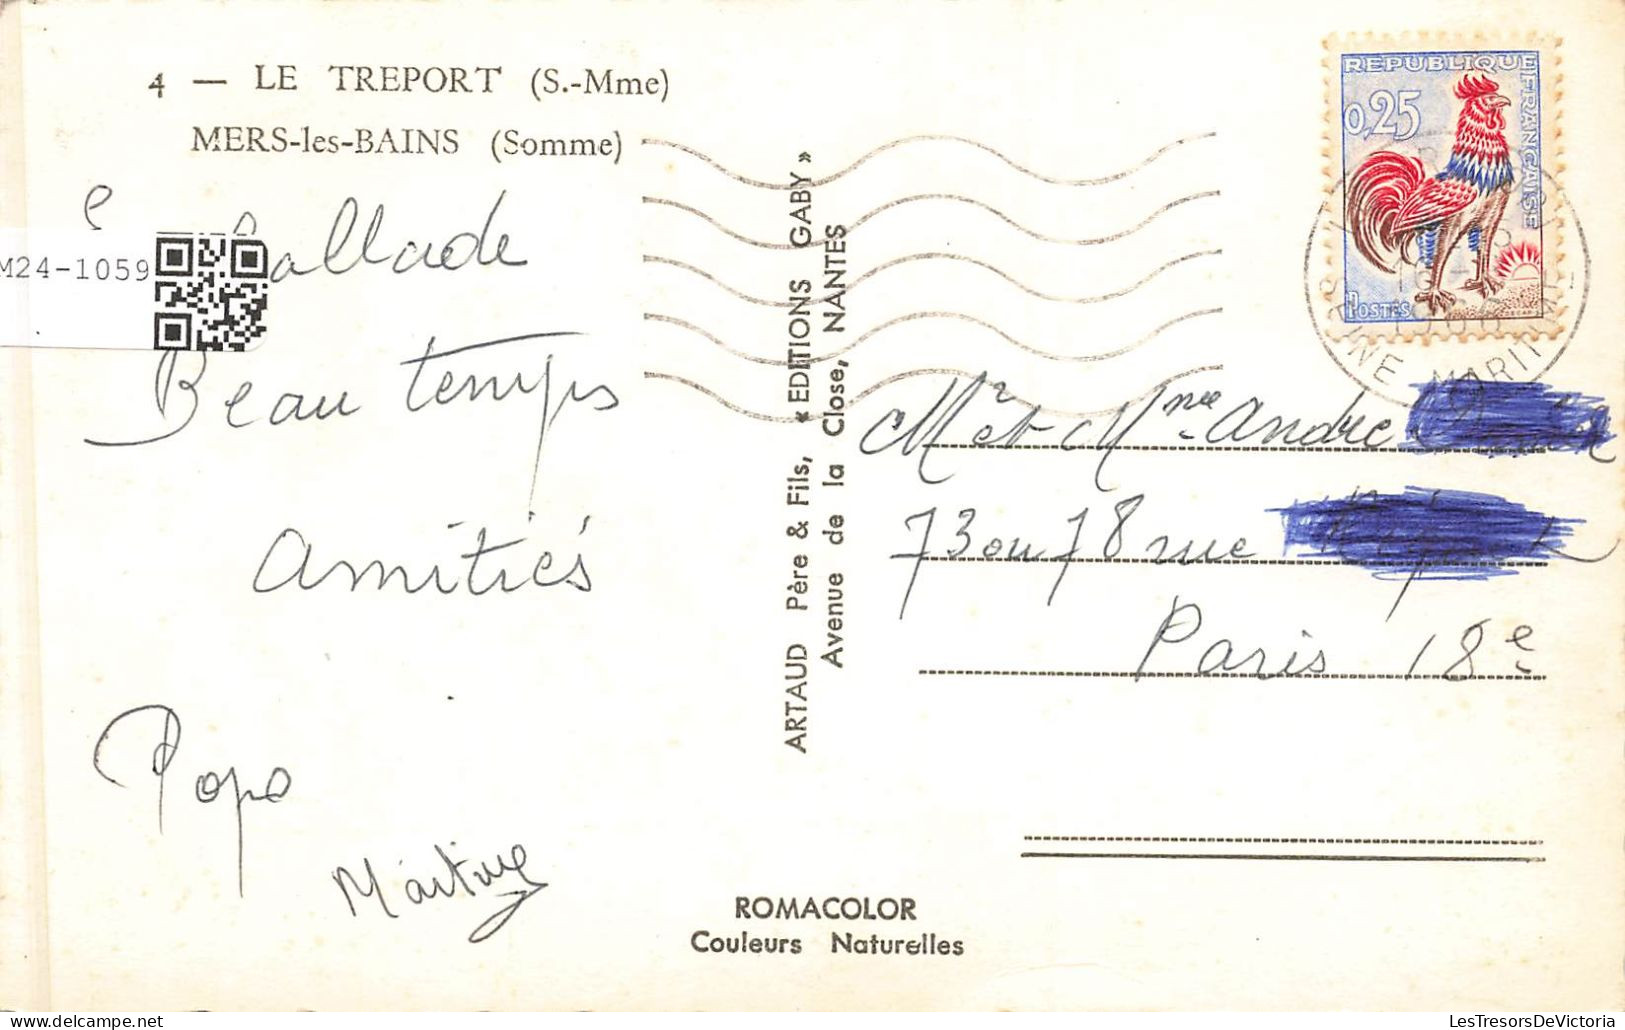 4 — LE TREPORT (S.-Mme)
MERS-les-BAINS (Somme)
M24-1059
Ballade
Beau temps
amitiés
Popo
Martine
ARTAUD Père & Fils, « EDITIONS GABY »
Avenue de la Close, NANTES
REPUBLIQUE FRANÇAISE
0,25
POSTES
SEINE MARITIME
Mr et Mme andre
73 ou 78 rue
Paris 18e
ROMACOLOR
Couleurs Naturelles
LesTresorsDeVictoria